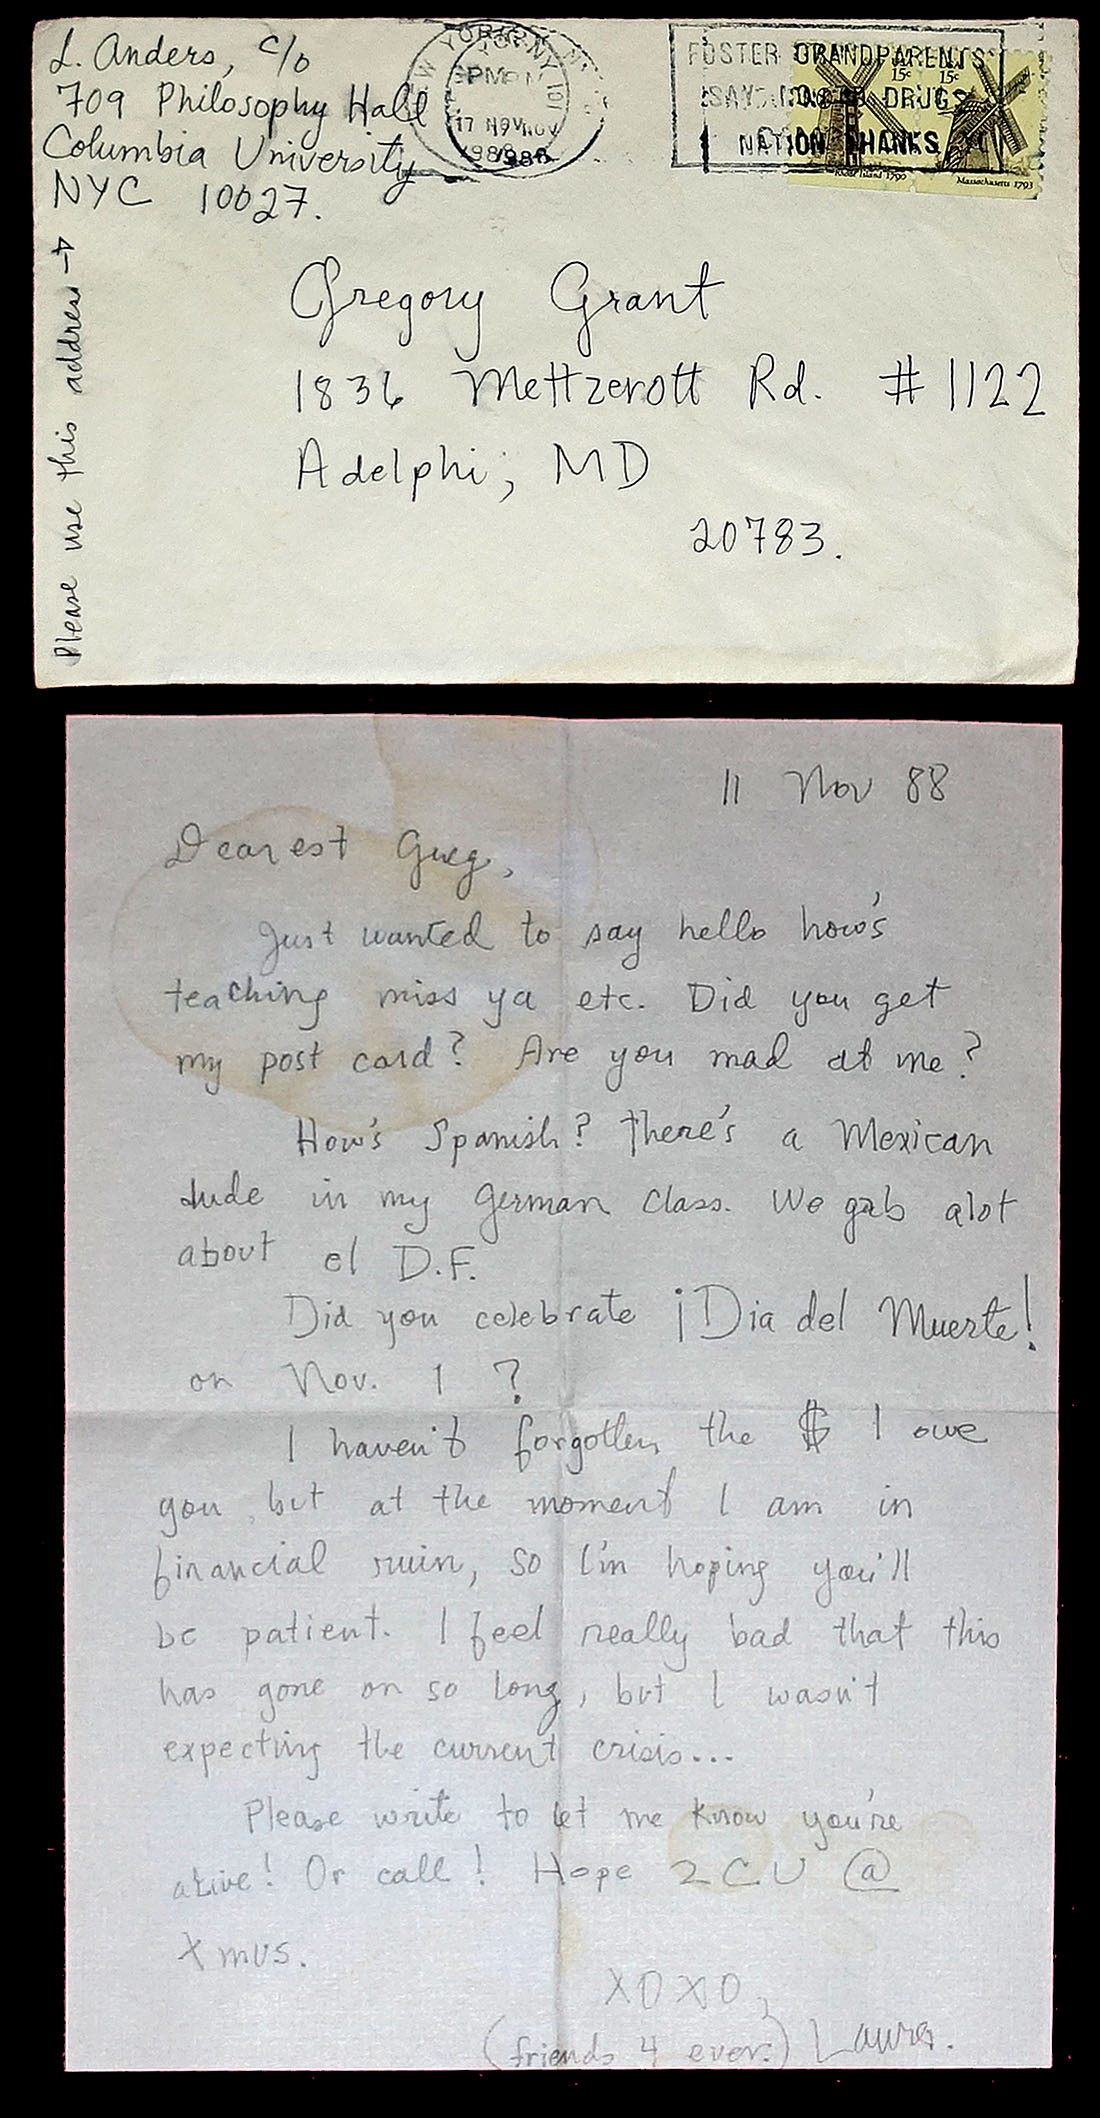 L. Anders, c/o
709 Philosophy Hall
Columbia University
NYC 10027.
Please use this address →
NEW YORK, NY
PM
17 NOV
1988
FOSTER GRANDPARENTS
SAY
DRUGS
THANKS
15c 15c
Rhode Island 1790
Massachusetts 1793
Gregory Grant
1836 Mettzerott Rd. #1122
Adelphi, MD
20783.
11 Nov 88
Dearest Greg,
Just wanted to say hello how's
teaching miss ya etc. Did you get
my post card? Are you mad at me?
How's Spanish? There's a Mexican
dude in my German class. We gab alot
about el D.F.
Did you celebrate ¡Dia del Muerte!
on Nov. 1 ?
I haven't forgotten the $ I owe
you, but at the moment I am in
financial ruin, so I'm hoping you'll
be patient. I feel really bad that this
has gone on so long, but I wasn't
expecting the current crisis...
Please write to let me know you're
alive! Or call! Hope 2 C U @
Xmus.
XOXO,
(friends 4 ever.) Laura.